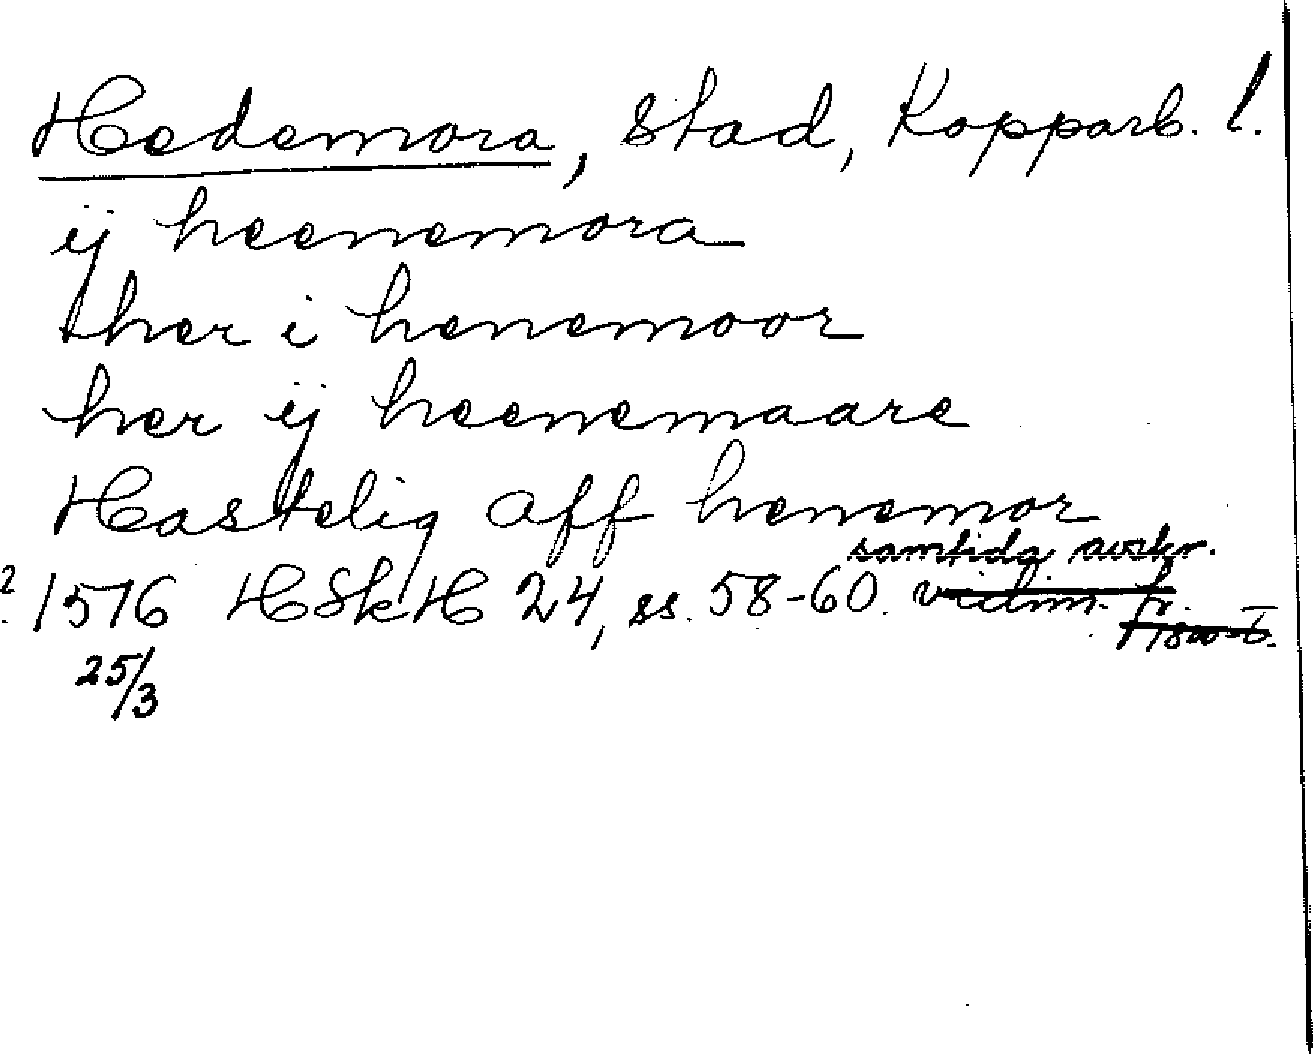 Hedemora, stad, Kopparb. l.
ij heenemora
ther i henemoor
her ij heenemaare
Hastelig aff henemor
samtida avskr.
1576 HSkH 24, ss. 58-60. vidim. fr.
25/3